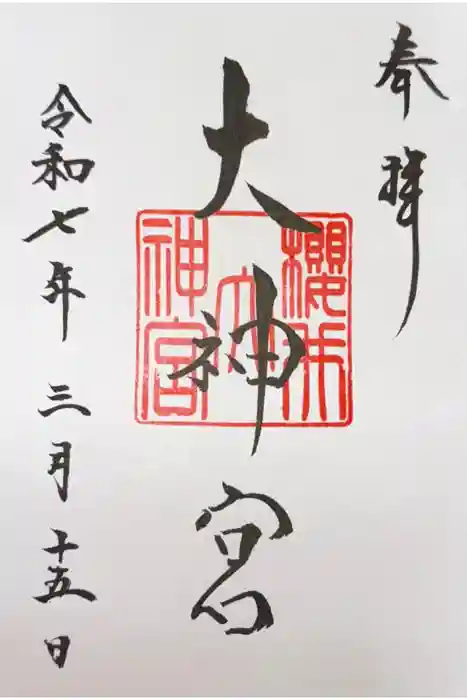 奉拝
櫻 大神宮
大神宮
令和七年 三月 十五日